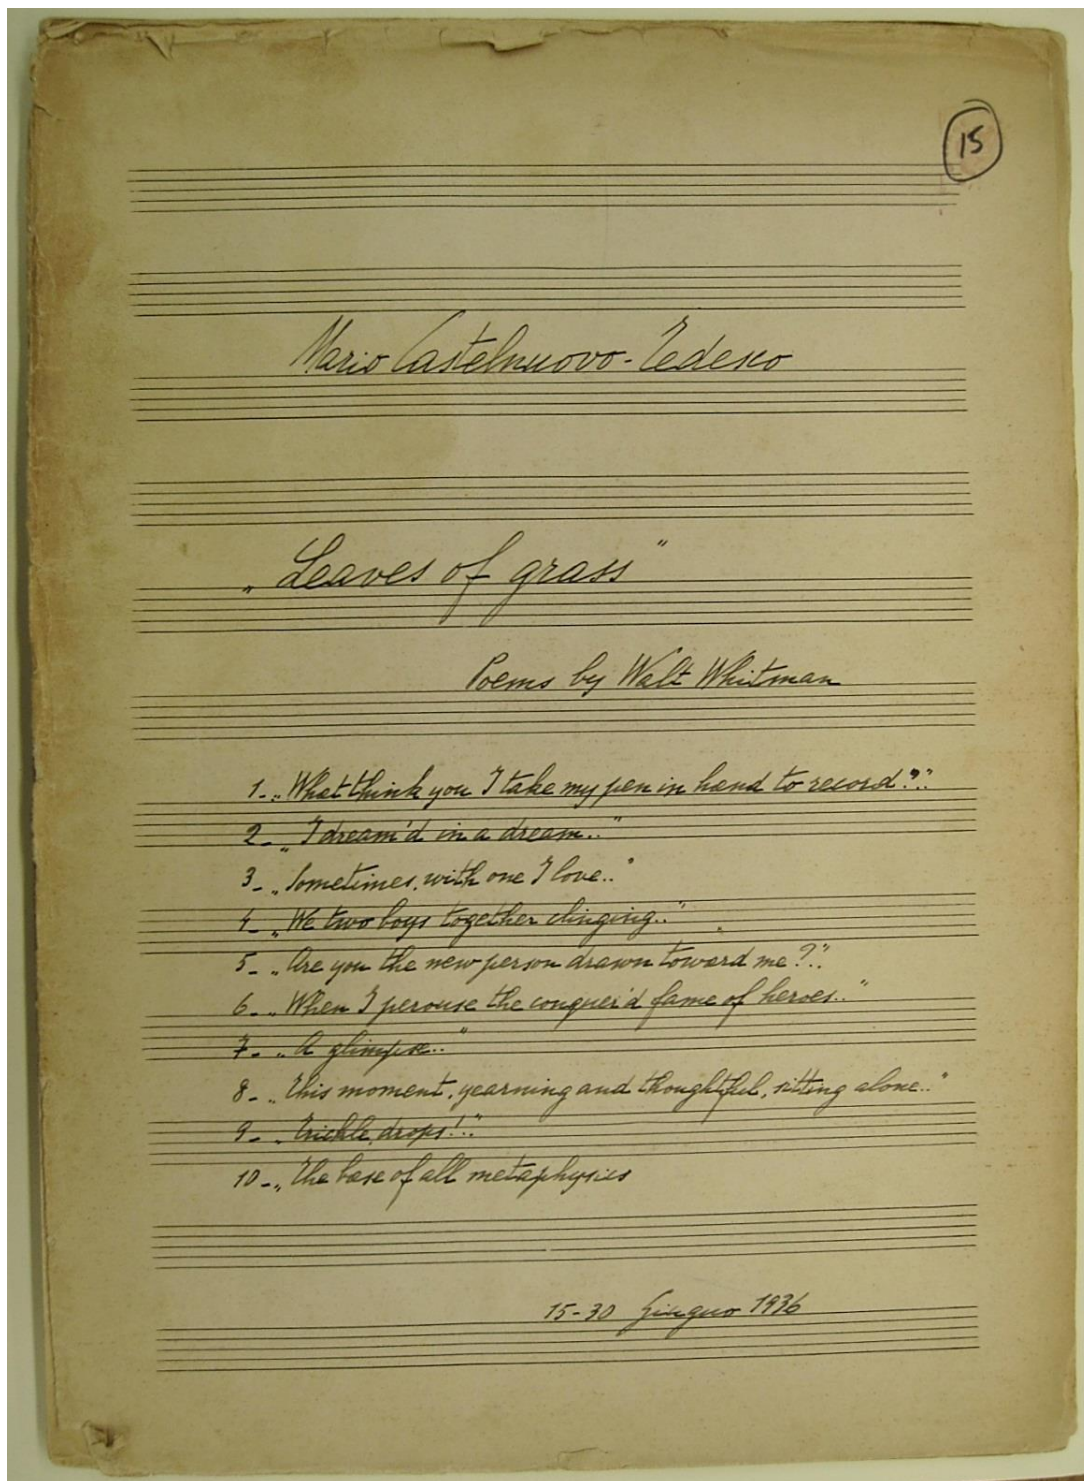 15
Mario Castelnuovo-Tedesco
„Leaves of grass"
Poems by Walt Whitman
1- „What think you I take my pen in hand to record?.."
2- „I dream'd in a dream.."
3- „Sometimes, with one I love.."
4- „We two boys together clinging.."
5- „Are you the new person drawn toward me?"..
6- „When I perouse the conquer'd fame of heroes.."
7- „A glimpse.."
8- „This moment, yearning and thoughtful, sitting alone.."
9- „Trickle, drops!.."
10- „The base of all metaphysics
15-30 Giugno 1936